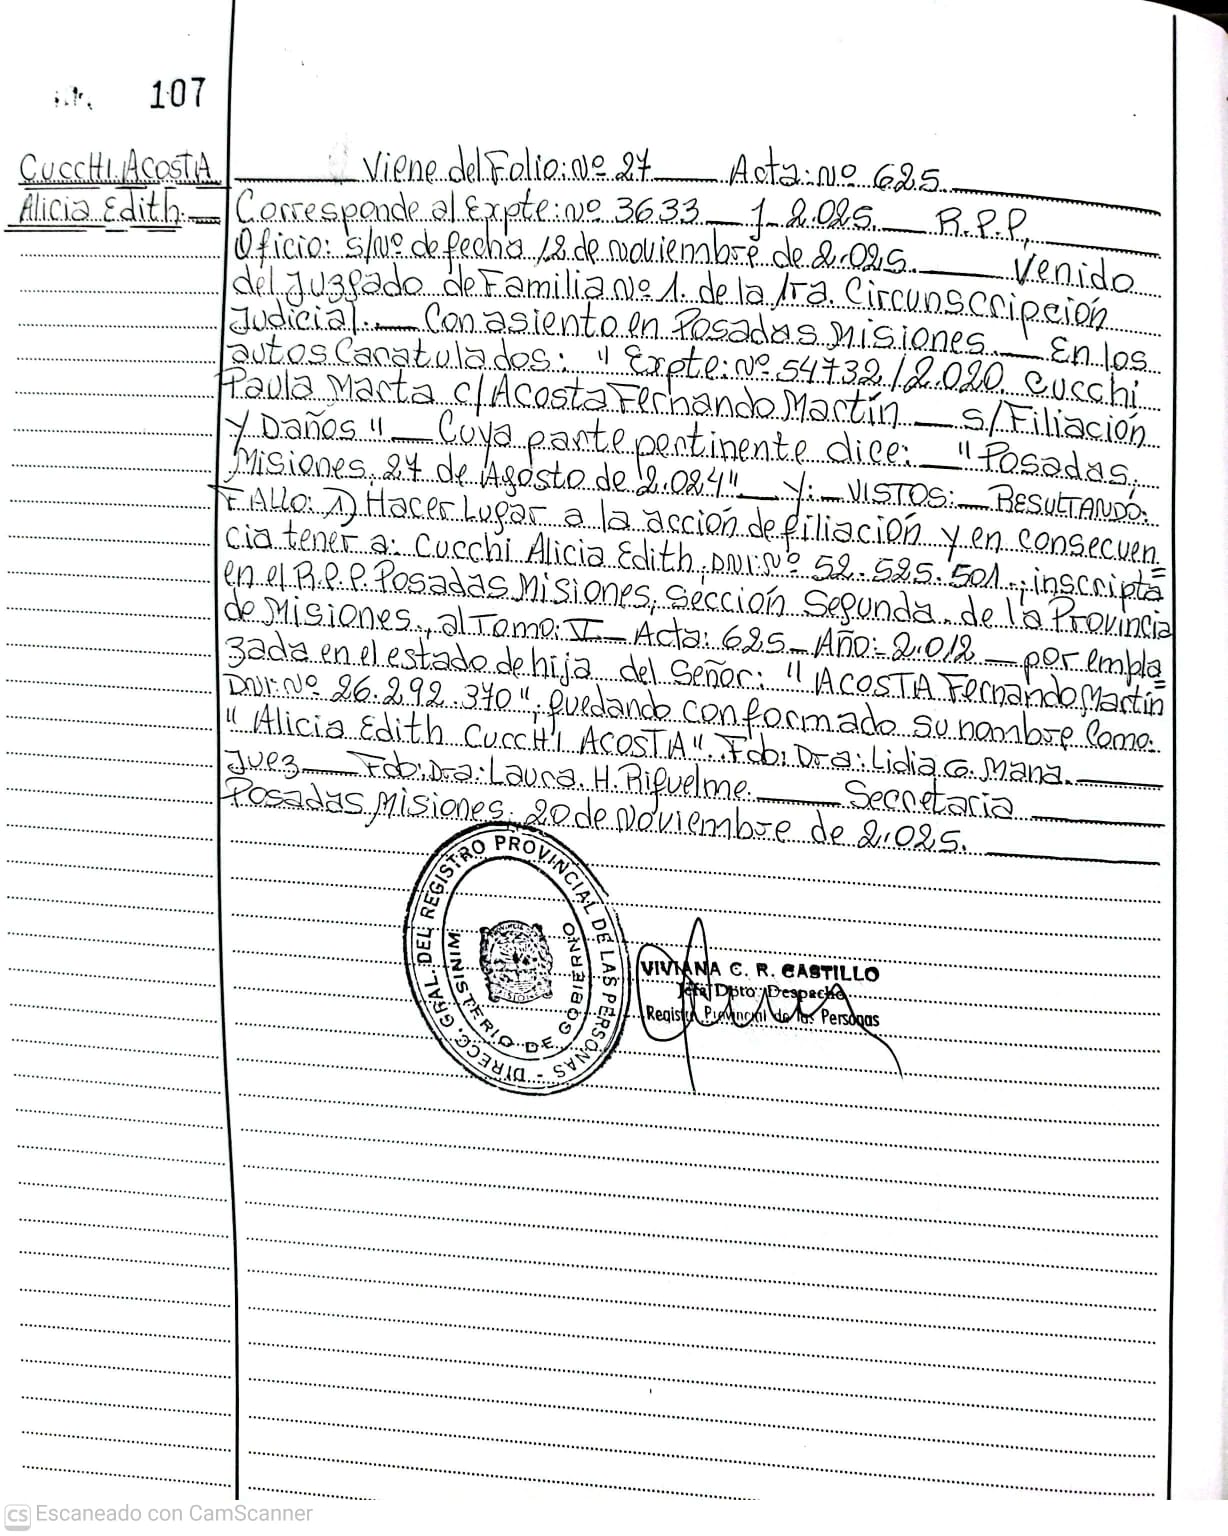 107
CUCCHI ACOSTA
Alicia Edith.
Viene del Folio: Nº 27 Acta: Nº 625.
Corresponde al Expte: Nº 3633 J 2.025. R.P.P.
Oficio: S/Nº de fecha 12 de Noviembre de 2.025. Venido
del Juzgado de Familia Nº 1. de la 1ra. Circunscripción
Judicial. Con asiento en Posadas Misiones. En los
autos Caratulados: "Expte: Nº 54732/2.020 Cucchi
Paula Marta c/ Acosta Fernando Martín s/Filiación
Y Daños" Cuya parte pertinente dice: "Posadas,
Misiones, 27 de Agosto de 2.024" Y: VISTOS: RESULTANDO:
FALLO: 1) Hacer Lugar a la acción de filiación y en consecuen=
cia tener a: Cucchi Alicia Edith, DNI: Nº 52.525.501., inscripta
en el R.P.P. Posadas Misiones, Sección Segunda. de la Provincia
de Misiones., al Tomo: VI Acta: 625 Año: 2.012 por empla=
zada en el estado de hija del Señor: "ACOSTA Fernando Martín
DNI: Nº 26.292.370", quedando conformado su nombre Como:
"Alicia Edith CUCCHI ACOSTA". Fdo: Dra: Lidia G. Mana.
Juez Fdo: Dra: Laura. H. Riquelme. Secretaria
Posadas Misiones. 20 de Noviembre de 2.025.
DIRECC. GRAL. DEL REGISTRO PROVINCIAL DE LAS PERSONAS -
MINISTERIO DE GOBIERNO
VIVIANA C. R. CASTILLO
Jefa Dpto. Despacho
Registro Provincial de las Personas
CS Escaneado con CamScanner